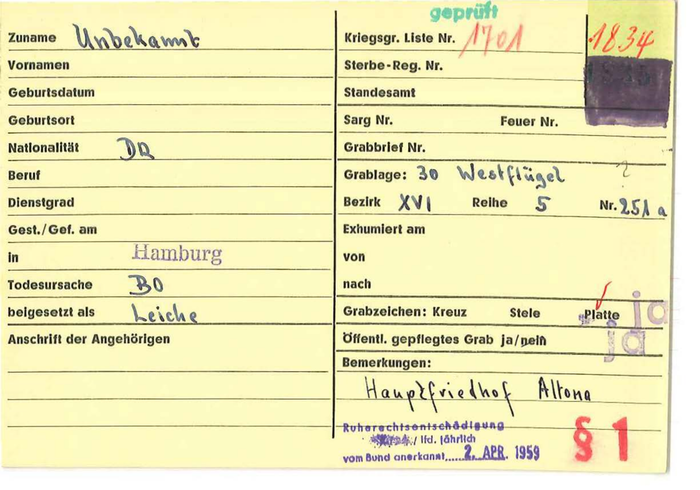 geprüft
Zuname Unbekannt
Vornamen
Geburtsdatum
Geburtsort
Nationalität DR
Beruf
Dienstgrad
Gest./Gef. am
in Hamburg
Todesursache BO
beigesetzt als Leiche
Anschrift der Angehörigen
Kriegsgr. Liste Nr. 1701 1834
Sterbe-Reg. Nr.
Standesamt
Sarg Nr. Feuer Nr.
Grabbrief Nr.
Grablage: 30 Westflügel ?
Bezirk XVI Reihe 5 Nr. 251 a
Exhumiert am
von
nach
Grabzeichen: Kreuz Stele Platte ja
Öffentl. gepflegtes Grab ja/nein ja
Bemerkungen:
Hauptfriedhof Altona
Ruherechtsentschädigung
/ lfd. jährlich
vom Bund anerkannt 2. APR. 1959
§ 1